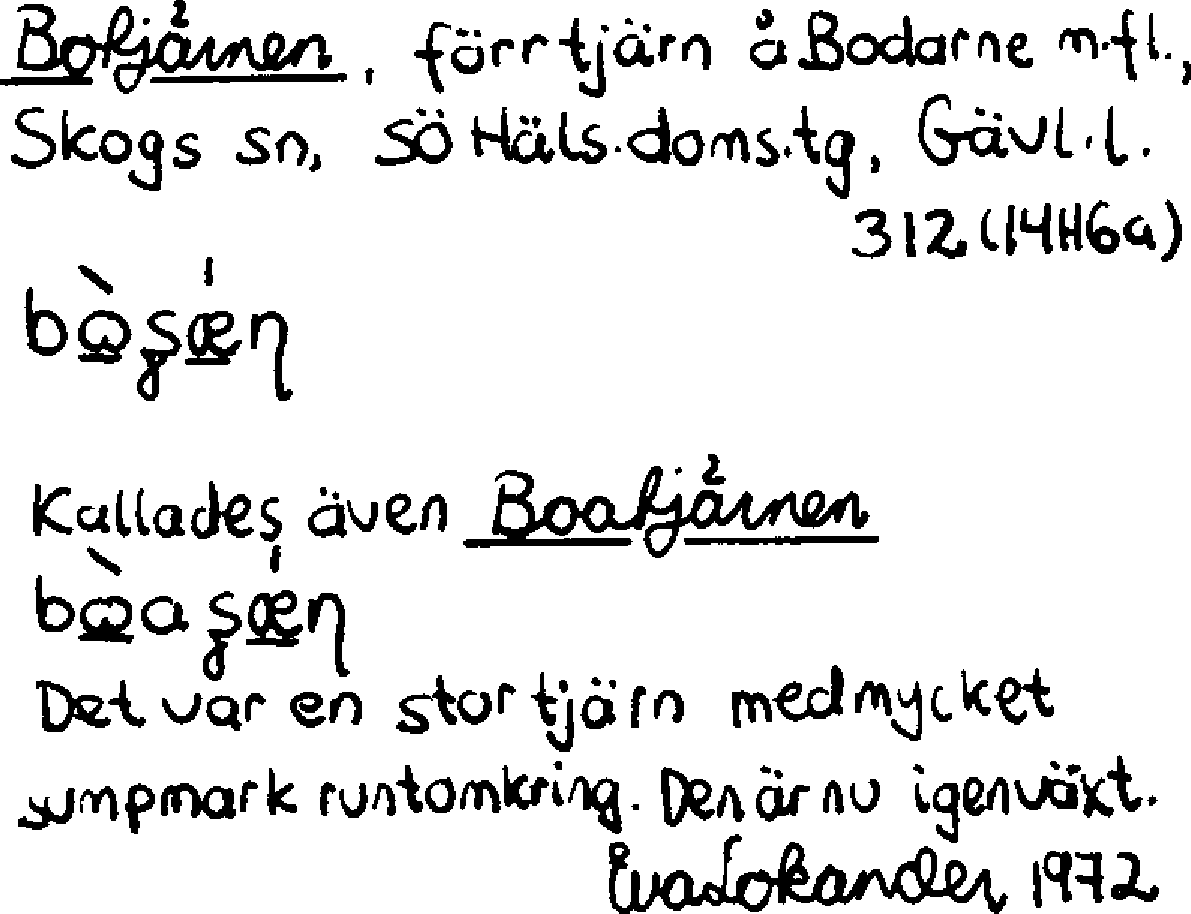 Botjä²rnen, förr tjärn å Bodarne m.fl.,
Skogs sn, SÖ Häls. doms.tg, Gävl.l.
312 (14H6a)
bɷ̀ʂǽn
Kallades även Boatjä²rnen
bɷ̀aʂǽn
Det var en stor tjärn med mycket
sumpmark runtomkring. Den är nu igenväxt.
Eva Lokander 1972